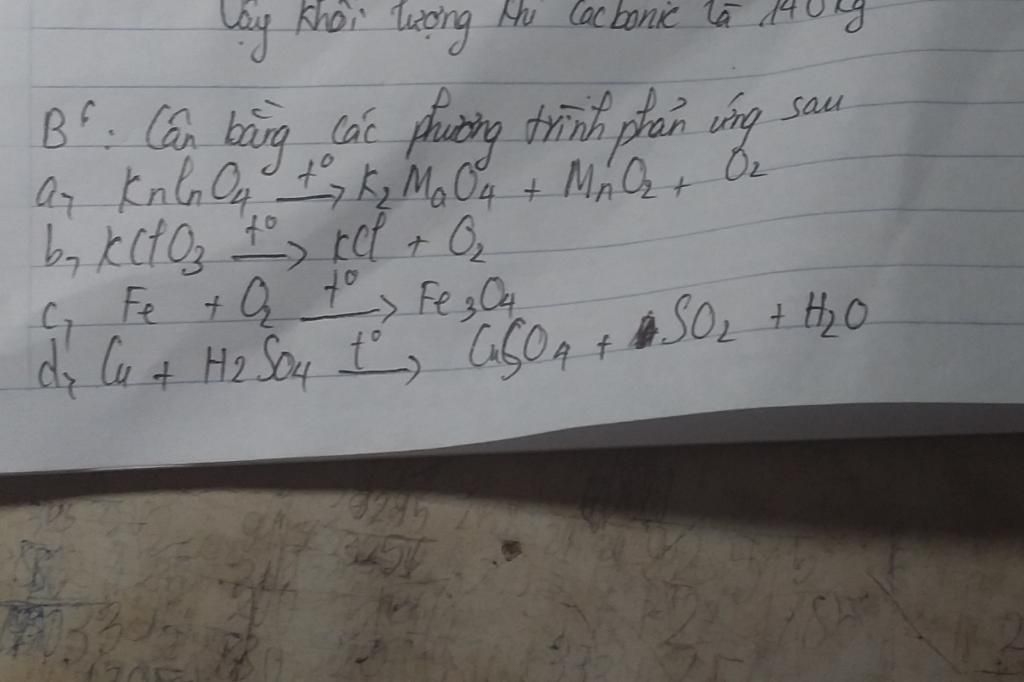 Vậy khối lượng khí Cacbonic là 140 kg
B6: Cân bằng các phương trình phản ứng sau
a, KMnO4 t° → K2MnO4 + MnO2 + O2
b, KClO3 t° → KCl + O2
c, Fe + O2 t° → Fe3O4
d, Cu + H2SO4 t° → CuSO4 + SO2 + H2O